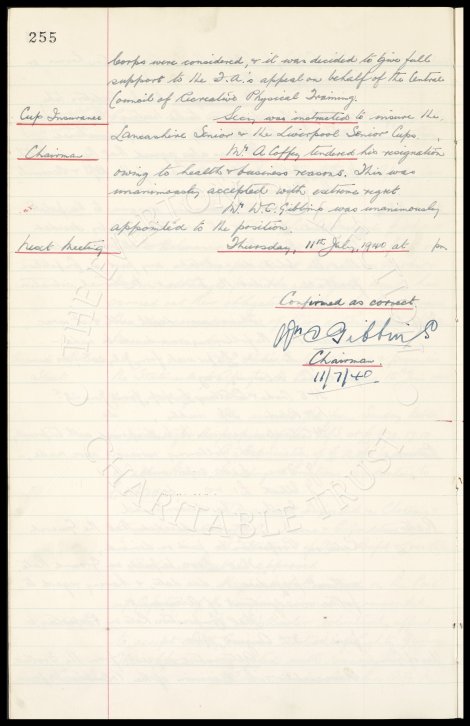 255
Corps were considered, & it was decided to give full
support to the F.A.'s appeal on behalf of the Central
Council of Recreative Physical Training.
Cup Insurance Secy was instructed to insure the
Lancashire Senior & the Liverpool Senior Cups.
Chairman Mr A Coffey tendered his resignation
owing to health & business reasons. This was
unanimously accepted with extreme regret
Mr W.C. Gibbins was unanimously
appointed to the position.
Next Meeting Thursday, 11th July, 1940 at pm
Confirmed as correct
Wm C Gibbins
Chairman
11/7/40
THE EVERTON COLLECTION
CHARITABLE TRUST